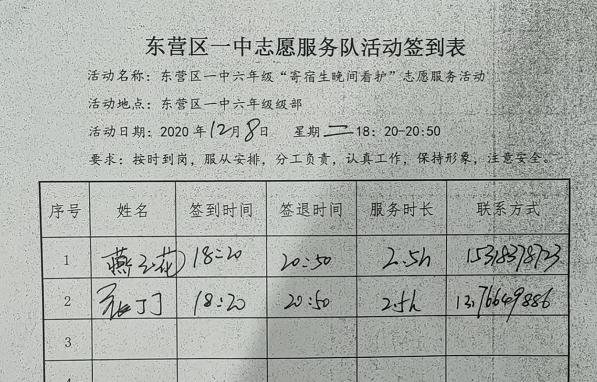 东营区一中志愿服务队活动签到表
活动名称：东营区一中六年级“寄宿生晚间看护”志愿服务活动
活动地点：东营区一中六年级级部
活动日期：2020 年12月8日 星期 二 18：20-20:50
要求：按时到岗，服从安排，分工负责，认真工作，保持形象，注意安全。
序号 姓名 签到时间 签退时间 服务时长 联系方式
1 燕 花 18:20 20:50 2.5h
2 张丁丁 18:20 20:50 2.5h
3